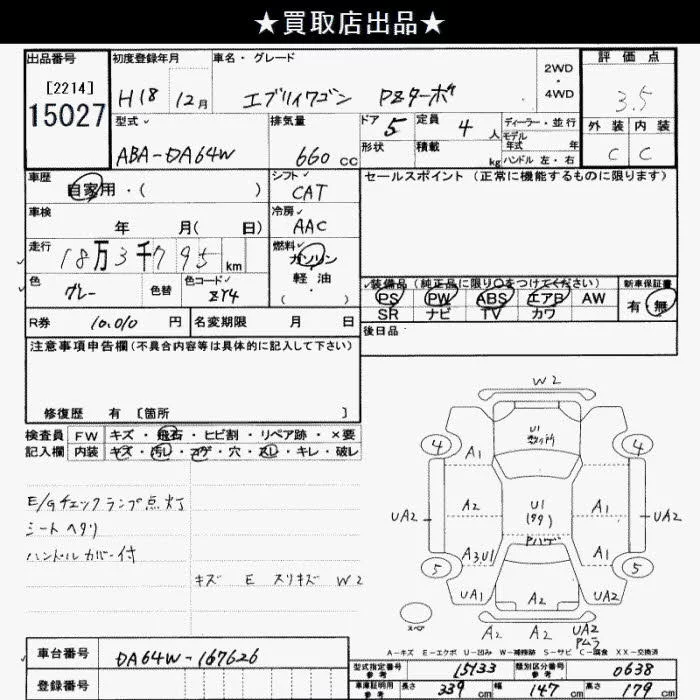 ★買取店出品★
出品番号 初度登録年月 車名・グレード 評価点
[2214] 2WD
15027 H18 12月 エブリイワゴン PZターボ 4WD 3.5
型式 排気量 ドア 定員 ディーラー・並行 外装 内装
ABA-DA64W 660 CC 5 4 人 モデル年式 年 C C
形状 積載 kg ハンドル 左・右
車歴 シフト セールスポイント (正常に機能するものに限ります)
自家用・( ) CAT
車検 冷房
年 月( 日) AAC
走行 燃料
18万3千795 km ガソリン
色 色替 色コード 軽油
グレー Z14 ( ・ )
装備品 (純正品に限り○をつけてください) 新車保証書
PS PW ABS エアB AW 有・無
SR ナビ TV カワ
R券 10,010 円 名変期限 月 日 後日品
注意事項申告欄(不具合内容等は具体的に記入して下さい)
修復歴 有 [箇所 ]
検査員 FW キズ・飛石・ヒビ割・リペア跡・×要
記入欄 内装 キズ・汚レ・コゲ・穴・スレ・キレ・破レ
E/Gチェックランプ点灯
シートヘタリ
ハンドルカバー付
キズ E スリキズ W2
W2
U1
4 4
A1
A2 U1 A1
UA2 (99) UA2
Pハゲ
A3,U1 A1
5 5
UA1 A2 UA1
スペア A2 A2 UA2
Pムラ
A-キズ E-エクボ U-凹み W-補修跡 S-サビ C-腐食 XX-交換済
車台番号 DA64W-167626
登録番号
型式指定番号 参考 15133 類別区分番号 参考 0638
車庫証明用 参考 長さ 339 cm 幅 147 cm 高さ 179 cm